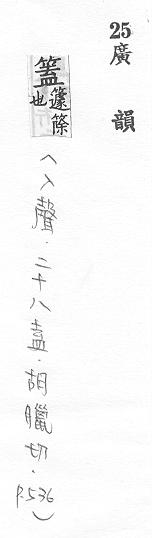 25廣韻
簋籧篨也
(入聲.二十八盍.胡臘切.P.536)